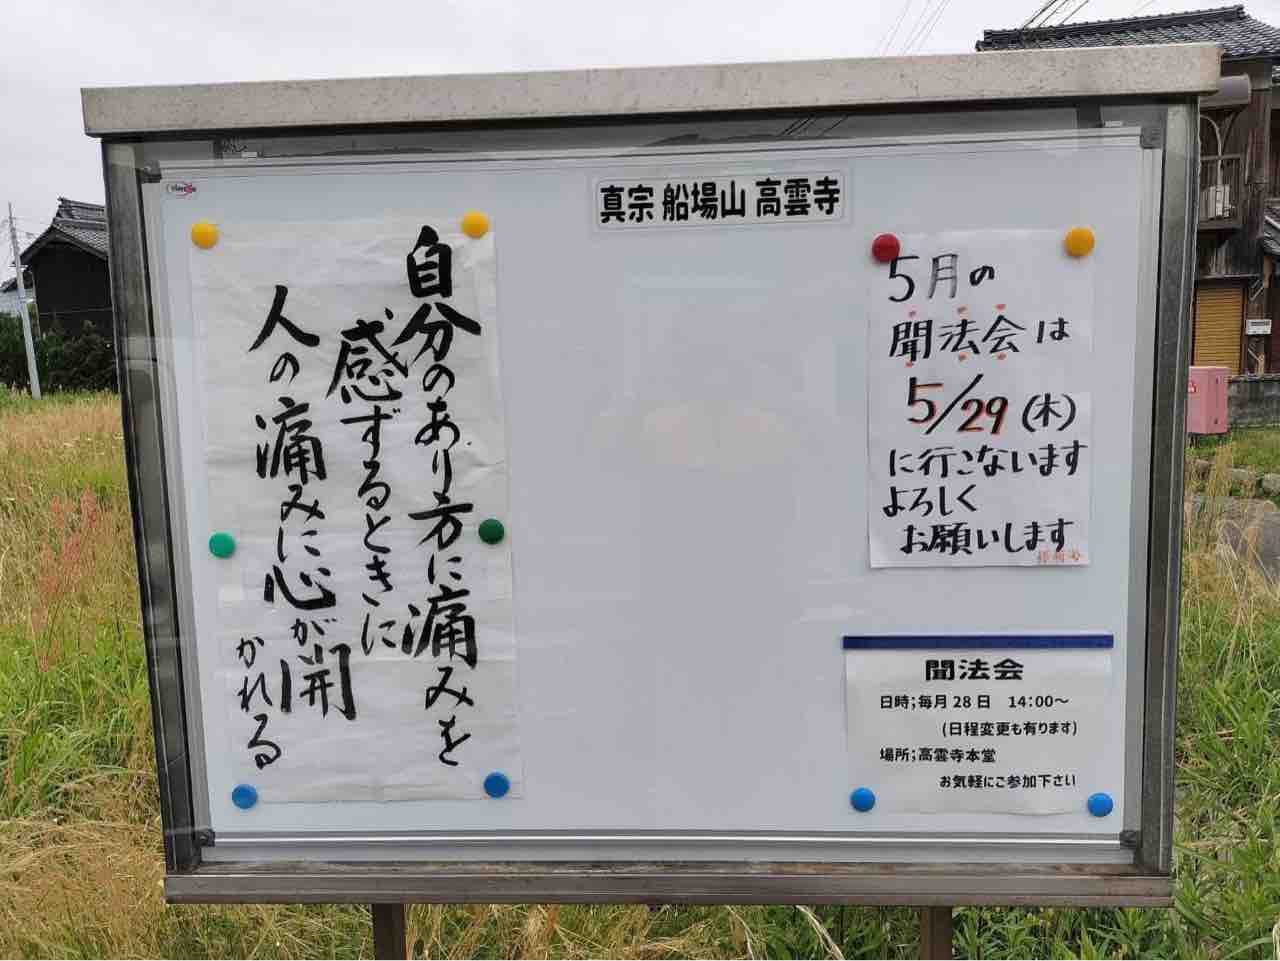 真宗 船場山 高雲寺
自分のあり方に痛みを
感ずるときに
人の痛みに心が開
かれる
5月の
聞法会は
5/29(木)
に行こないます
よろしく
お願いします
聞法会
日時;毎月28日 14:00～
(日程変更も有ります)
場所;高雲寺本堂
お気軽にご参加下さい